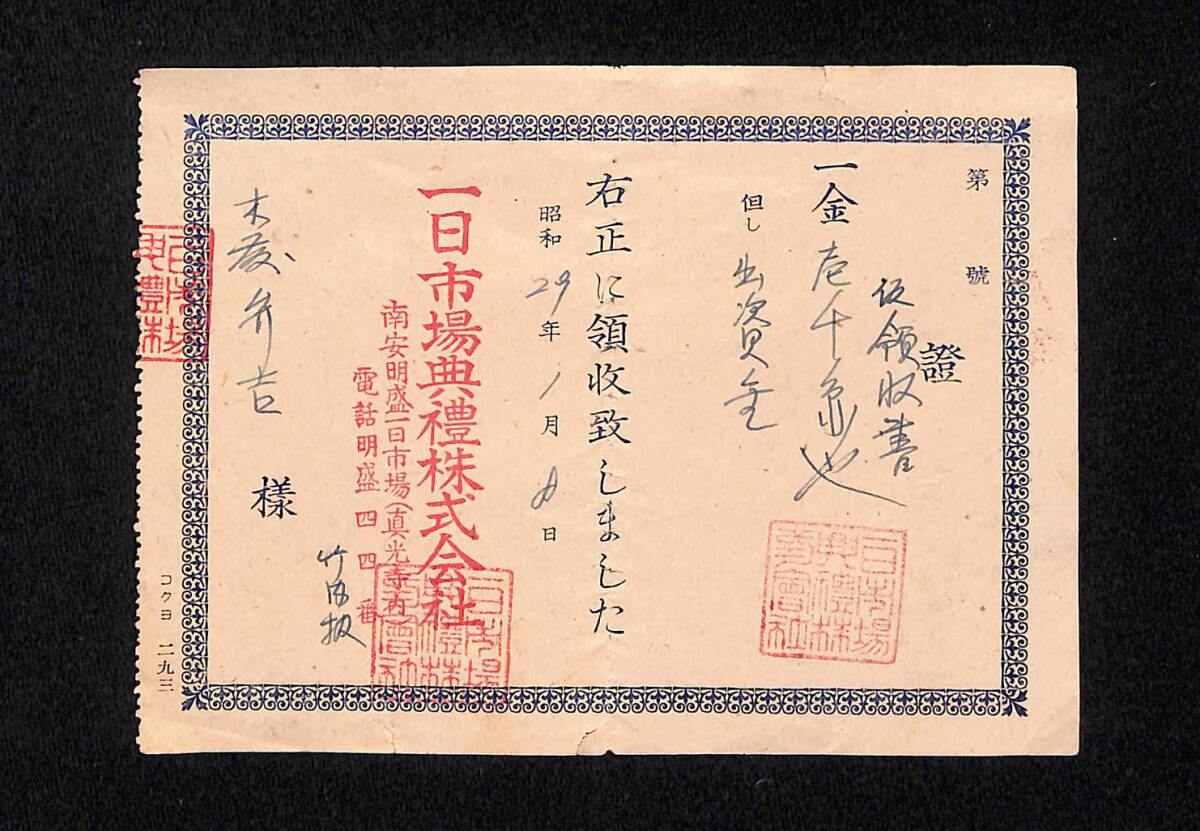 第 號
證
仮領收書
一金 壱千円也
但し 出資金
右正に領收致しました
昭和 29 年 1 月 日
一日市場典禮株式会社
南安明盛一日市場(真光寺内)
電話明盛四四番
弁吉 様
竹内扱
一日市場典禮株式會社
コクヨ 二九三